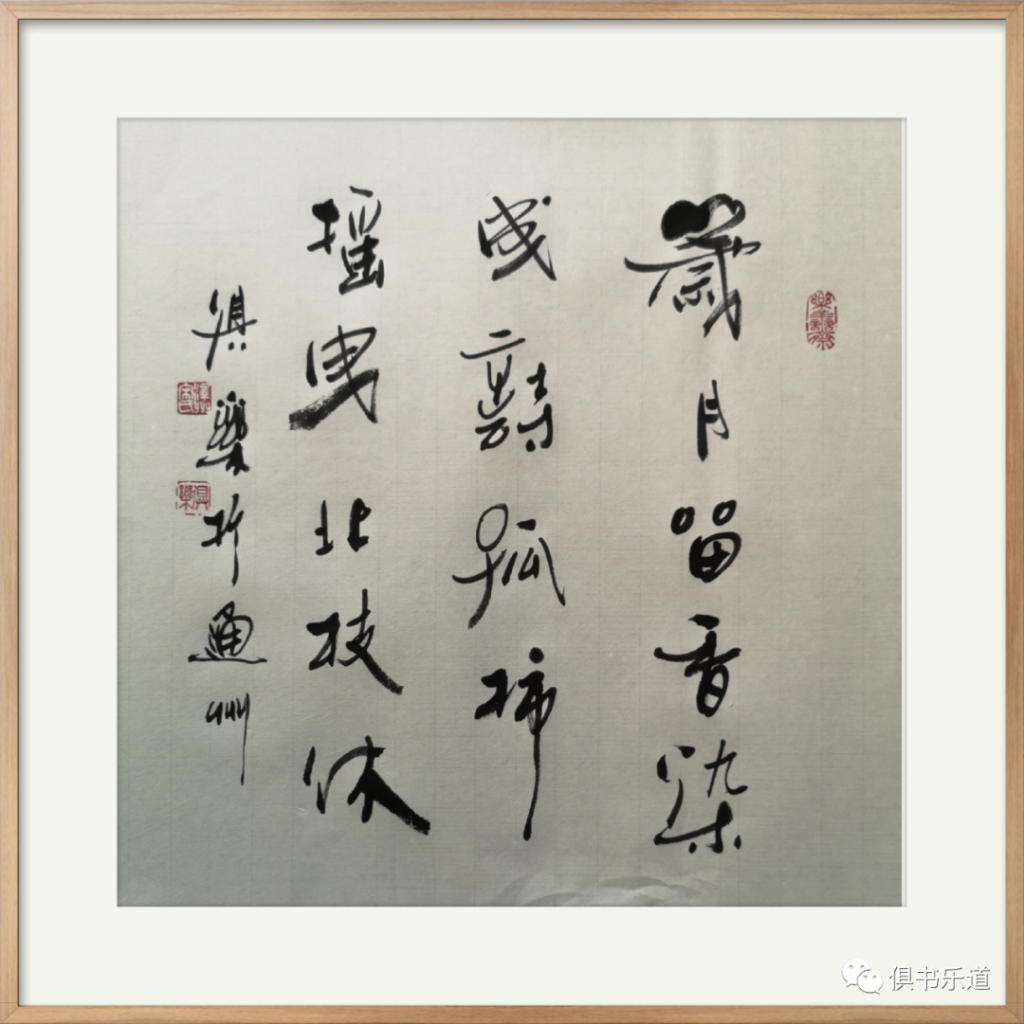 歲月留香染
成孤柿
摇曳北枝休
俱樂於通州
俱书乐道